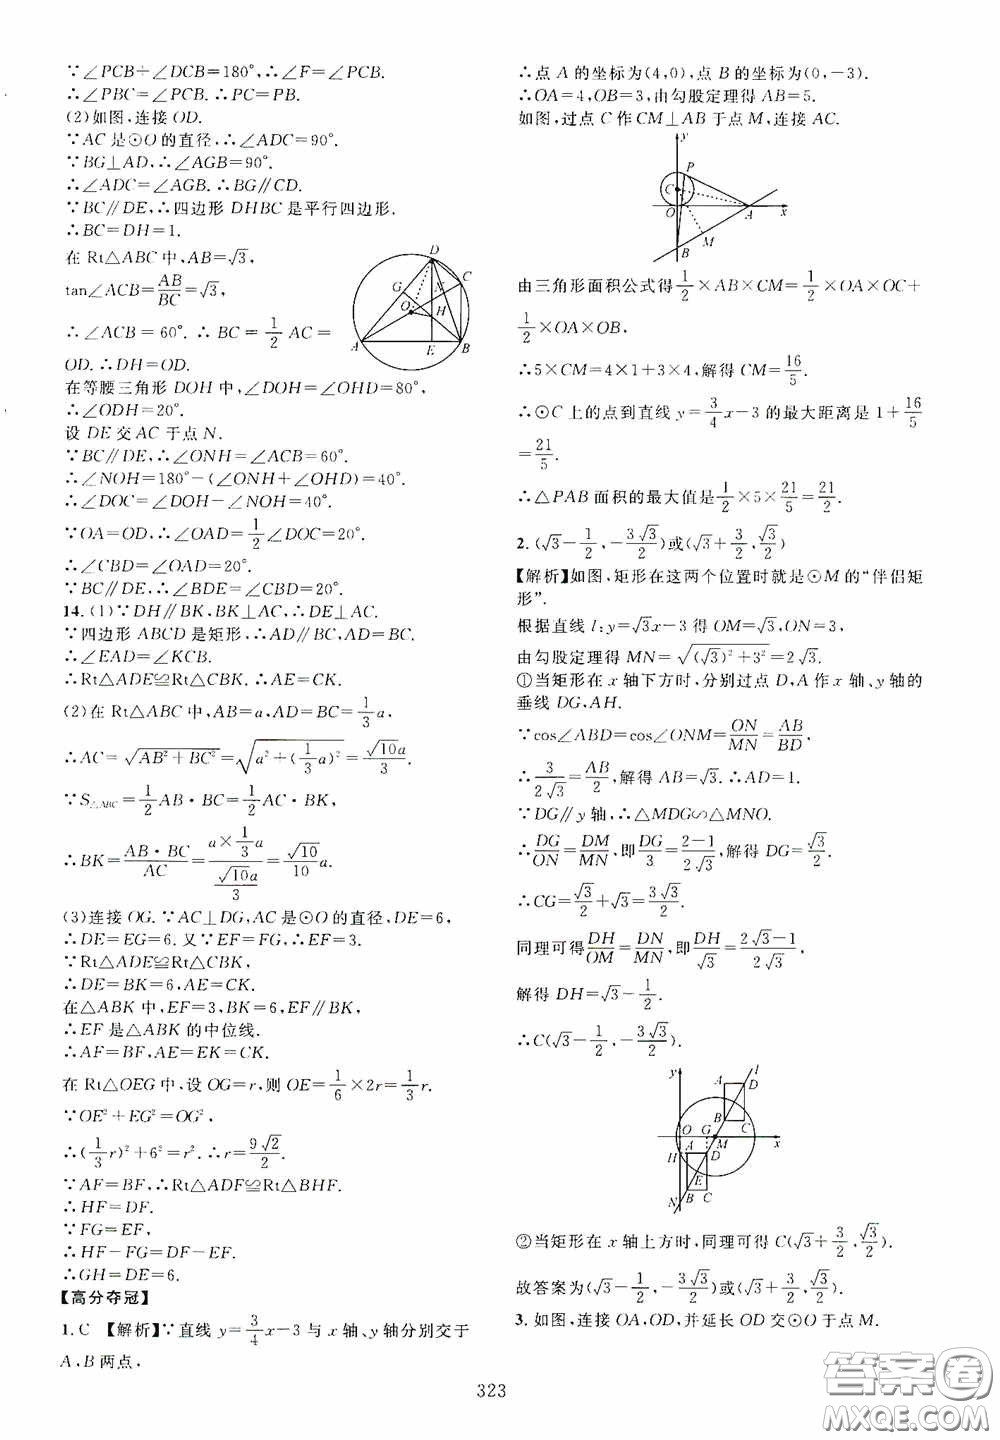 ∵∠PCB÷∠DCB=180°,∴∠F=∠PCB.
∴∠PBC=∠PCB.∴PC=PB.
(2)如图,连接OD.
∵AC是⊙O的直径,∴∠ADC=90°.
∵BG⊥AD,∴∠AGB=90°.
∴∠ADC=∠AGB.∴BG∥CD.
∵BC∥DE,∴四边形DHBC是平行四边形.
∴BC=DH=1.
在Rt△ABC中,AB=√3,
tan∠ACB=AB/BC=√3,
∴∠ACB=60°.∴BC=1/2 AC=
OD.∴DH=OD.
在等腰三角形DOH中,∠DOH=∠OHD=80°,
∴∠ODH=20°.
设DE交AC于点N.
∵BC∥DE,∴∠ONH=∠ACB=60°.
∴∠NOH=180°-(∠ONH+∠OHD)=40°.
∴∠DOC=∠DOH-∠NOH=40°.
∵OA=OD,∴∠OAD=1/2∠DOC=20°.
∴∠CBD=∠OAD=20°.
∵BC∥DE,∴∠BDE=∠CBD=20°.
14.(1)∵DH∥BK,BK⊥AC,∴DE⊥AC.
∵四边形ABCD是矩形,∴AD∥BC,AD=BC.
∴∠EAD=∠KCB.
∴Rt△ADE≌Rt△CBK.∴AE=CK.
(2)在Rt△ABC中,AB=a,AD=BC=1/3 a,
∴AC=√(AB²+BC²)=√(a²+(1/3 a)²)=√10a/3.
∵S△ABC=1/2 AB·BC=1/2 AC·BK,
∴BK=AB·BC/AC=(a×1/3 a)/(√10a/3)=√10/10 a.
(3)连接OG.∵AC⊥DG,AC是⊙O的直径,DE=6,
∴DE=EG=6.又∵EF=FG,∴EF=3.
∵Rt△ADE≌Rt△CBK,
∴DE=BK=6,AE=CK.
在△ABK中,EF=3,BK=6,EF∥BK,
∴EF是△ABK的中位线.
∴AF=BF,AE=EK=CK.
在Rt△OEG中,设OG=r,则OE=1/6×2r=1/3 r.
∵OE²+EG²=OG²,
∴(1/3 r)²+6²=r².∴r=9√2/2.
∵AF=BF,∴Rt△ADF≌Rt△BHF.
∴HF=DF.
∵FG=EF,
∴HF-FG=DF-EF.
∴GH=DE=6.
【高分夺冠】
1.C 【解析】∵直线y=3/4 x-3与x轴、y轴分别交于
A,B两点,
D
C
G
N
O
H
A
E
B
∴点A的坐标为(4,0),点B的坐标为(0,-3).
∴OA=4,OB=3,由勾股定理得AB=5.
如图,过点C作CM⊥AB于点M,连接AC.
y
P
C
O
A
x
M
B
由三角形面积公式得1/2×AB×CM=1/2×OA×OC+
1/2×OA×OB,
∴5×CM=4×1+3×4,解得CM=16/5.
∴⊙C上的点到直线y=3/4 x-3的最大距离是1+16/5
=21/5.
∴△PAB面积的最大值是1/2×5×21/5=21/2.
2.(√3-1/2,-3√3/2)或(√3+3/2,√3/2)
【解析】如图,矩形在这两个位置时就是⊙M的“伴侣矩
形”.
根据直线l:y=√3x-3得OM=√3,ON=3,
由勾股定理得MN=√((√3)²+3²)=2√3.
①当矩形在x轴下方时,分别过点D,A作x轴、y轴的
垂线DG,AH.
∵cos∠ABD=cos∠ONM=ON/MN=AB/BD,
∴3/2√3=AB/2,解得AB=√3.∴AD=1.
∵DG∥y轴,∴△MDG∽△MNO.
∴DG/ON=DM/MN,即DG/3=(2-1)/2√3,解得DG=√3/2.
∴CG=√3/2+√3=3√3/2.
同理可得DH/OM=DN/MN,即DH/√3=(2√3-1)/2√3,
解得DH=√3-1/2.
∴C(√3-1/2,-3√3/2).
y
l
A
D
B
C
O
G
M
x
H
A
D
E
N
B
C
②当矩形在x轴上方时,同理可得C(√3+3/2,√3/2).
故答案为(√3-1/2,-3√3/2)或(√3+3/2,√3/2).
3.如图,连接OA,OD,并延长OD交⊙O于点M.
323
答案卷
MXQE.COM